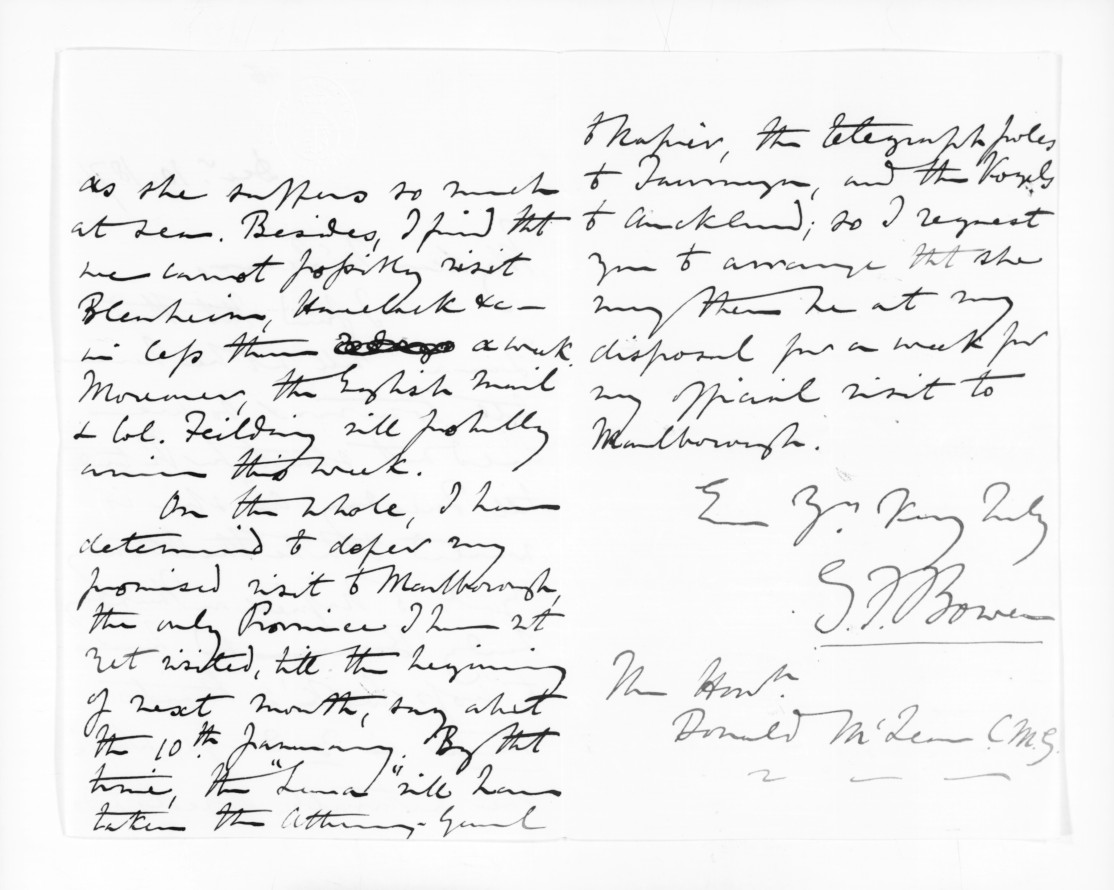 as she suffers so much
at sea. Besides, I find tht
we cannot possibly visit
Blenheim, Havelock &c –
in less than a week.
Moreover, the English Mail
& Col. Feilding will probably
arrive this week.
On the whole, I have
determined to defer my
promised visit to Marlborough,
the only Province I have not
yet visited, till the beginning
of next month, say abt
the 10th January. By tht
time, the "Luna" will have
taken the Attorney-General
to Napier, the telegraph poles
to Tauranga, and the Vogels
to Auckland; so I request
you to arrange tht she
may then be at my
disposal for a week for
my official visit to
Marlborough.
Ever Yrs. Very Truly
G.F. Bowen
The Honble.
Donald McLean C.M.G.